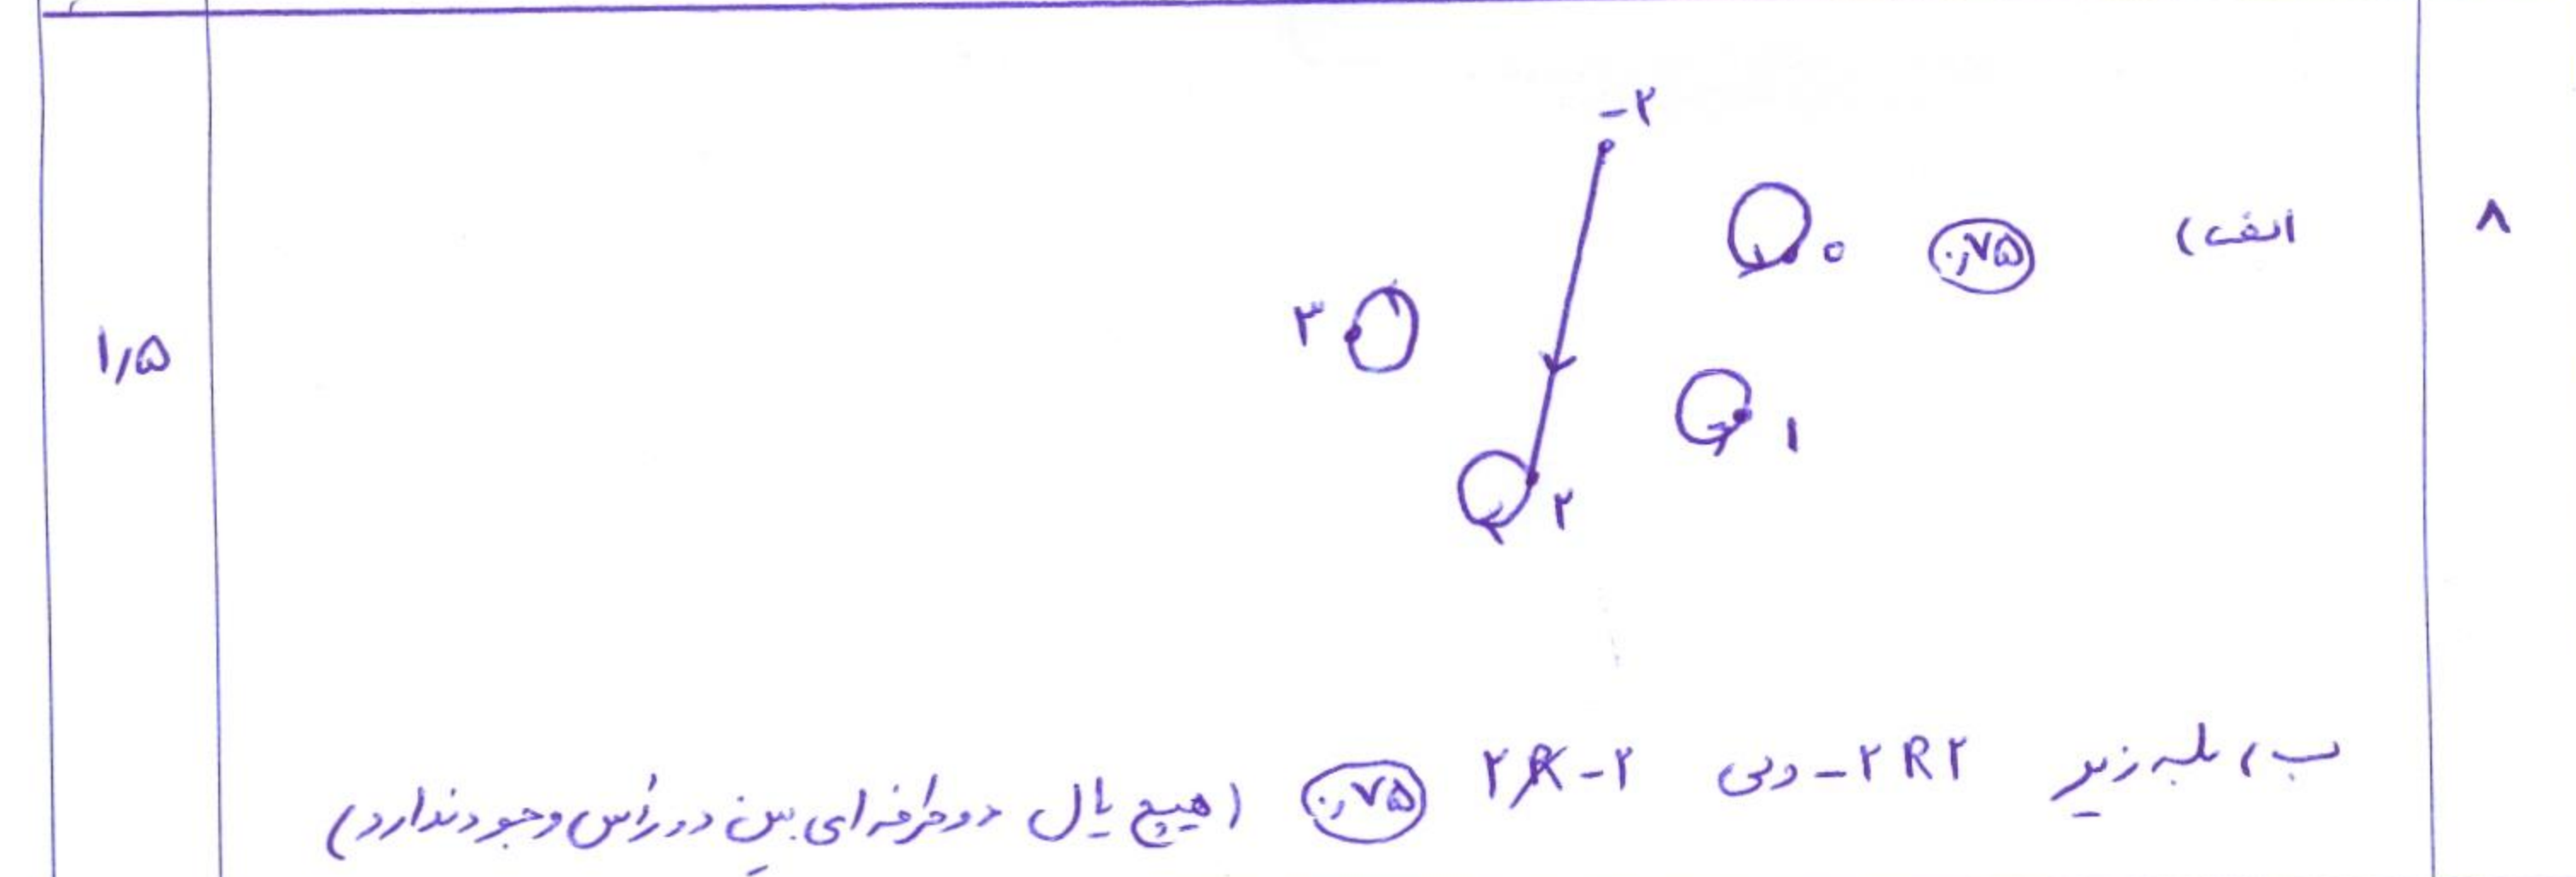 -۲
۸
الف)
۰٫۷۵
۰
۳
۱٫۵
۱
۲
ب) بله زیر -۲R۲ ولی ۲R̸-۲ ۰٫۷۵ (هیچ یال دوطرفه‌ای بین دو رأس وجود ندارد)